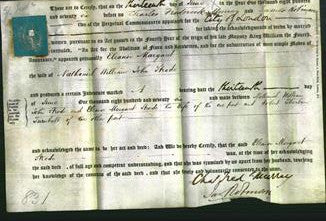 These are to Certify, that on the thirteenth day of June
One thousand eight hundred and seventy one before us
of the Perpetual Commissioners appointed for the City of London
for taking the acknowledgments of deeds by married
women, pursuant to an Act passed in the Fourth Year of the reign of his late Majesty King William the Fourth,
intituled, "An Act for the Abolition of Fines and Recoveries, and for the substitution of more simple Modes of
Assurance," appeared personally Eleanor Margaret
the wife of Nathaniel William John Strode
and produced a certain Indenture marked A bearing date the thirteenth
of June One thousand eight hundred and seventy one and made between Nathaniel William
John Strode and Eleanor Margaret Strode his wife of the one part and Robert
of the other part
and acknowledged the same to be her act and deed: And We do hereby Certify, that the said Eleanor Margaret
Strode was, at the time of her acknowledging
the said deed, of full age and competent understanding, and that she was examined by us apart from her husband, touching
her knowledge of the contents of the said deed, and that she freely and voluntarily consented to the same.
831